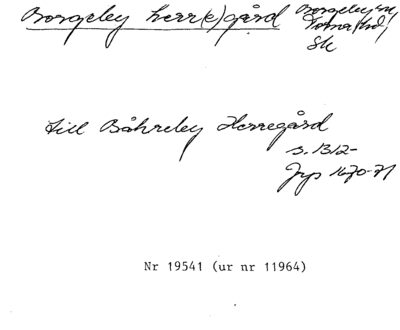 Borgeby herr(e)gård
Borgeby sn,
Torna hd,
Sk
till Båhreby Herregård
s. 1312-
Jyp 1670-71
Nr 19541 (ur nr 11964)